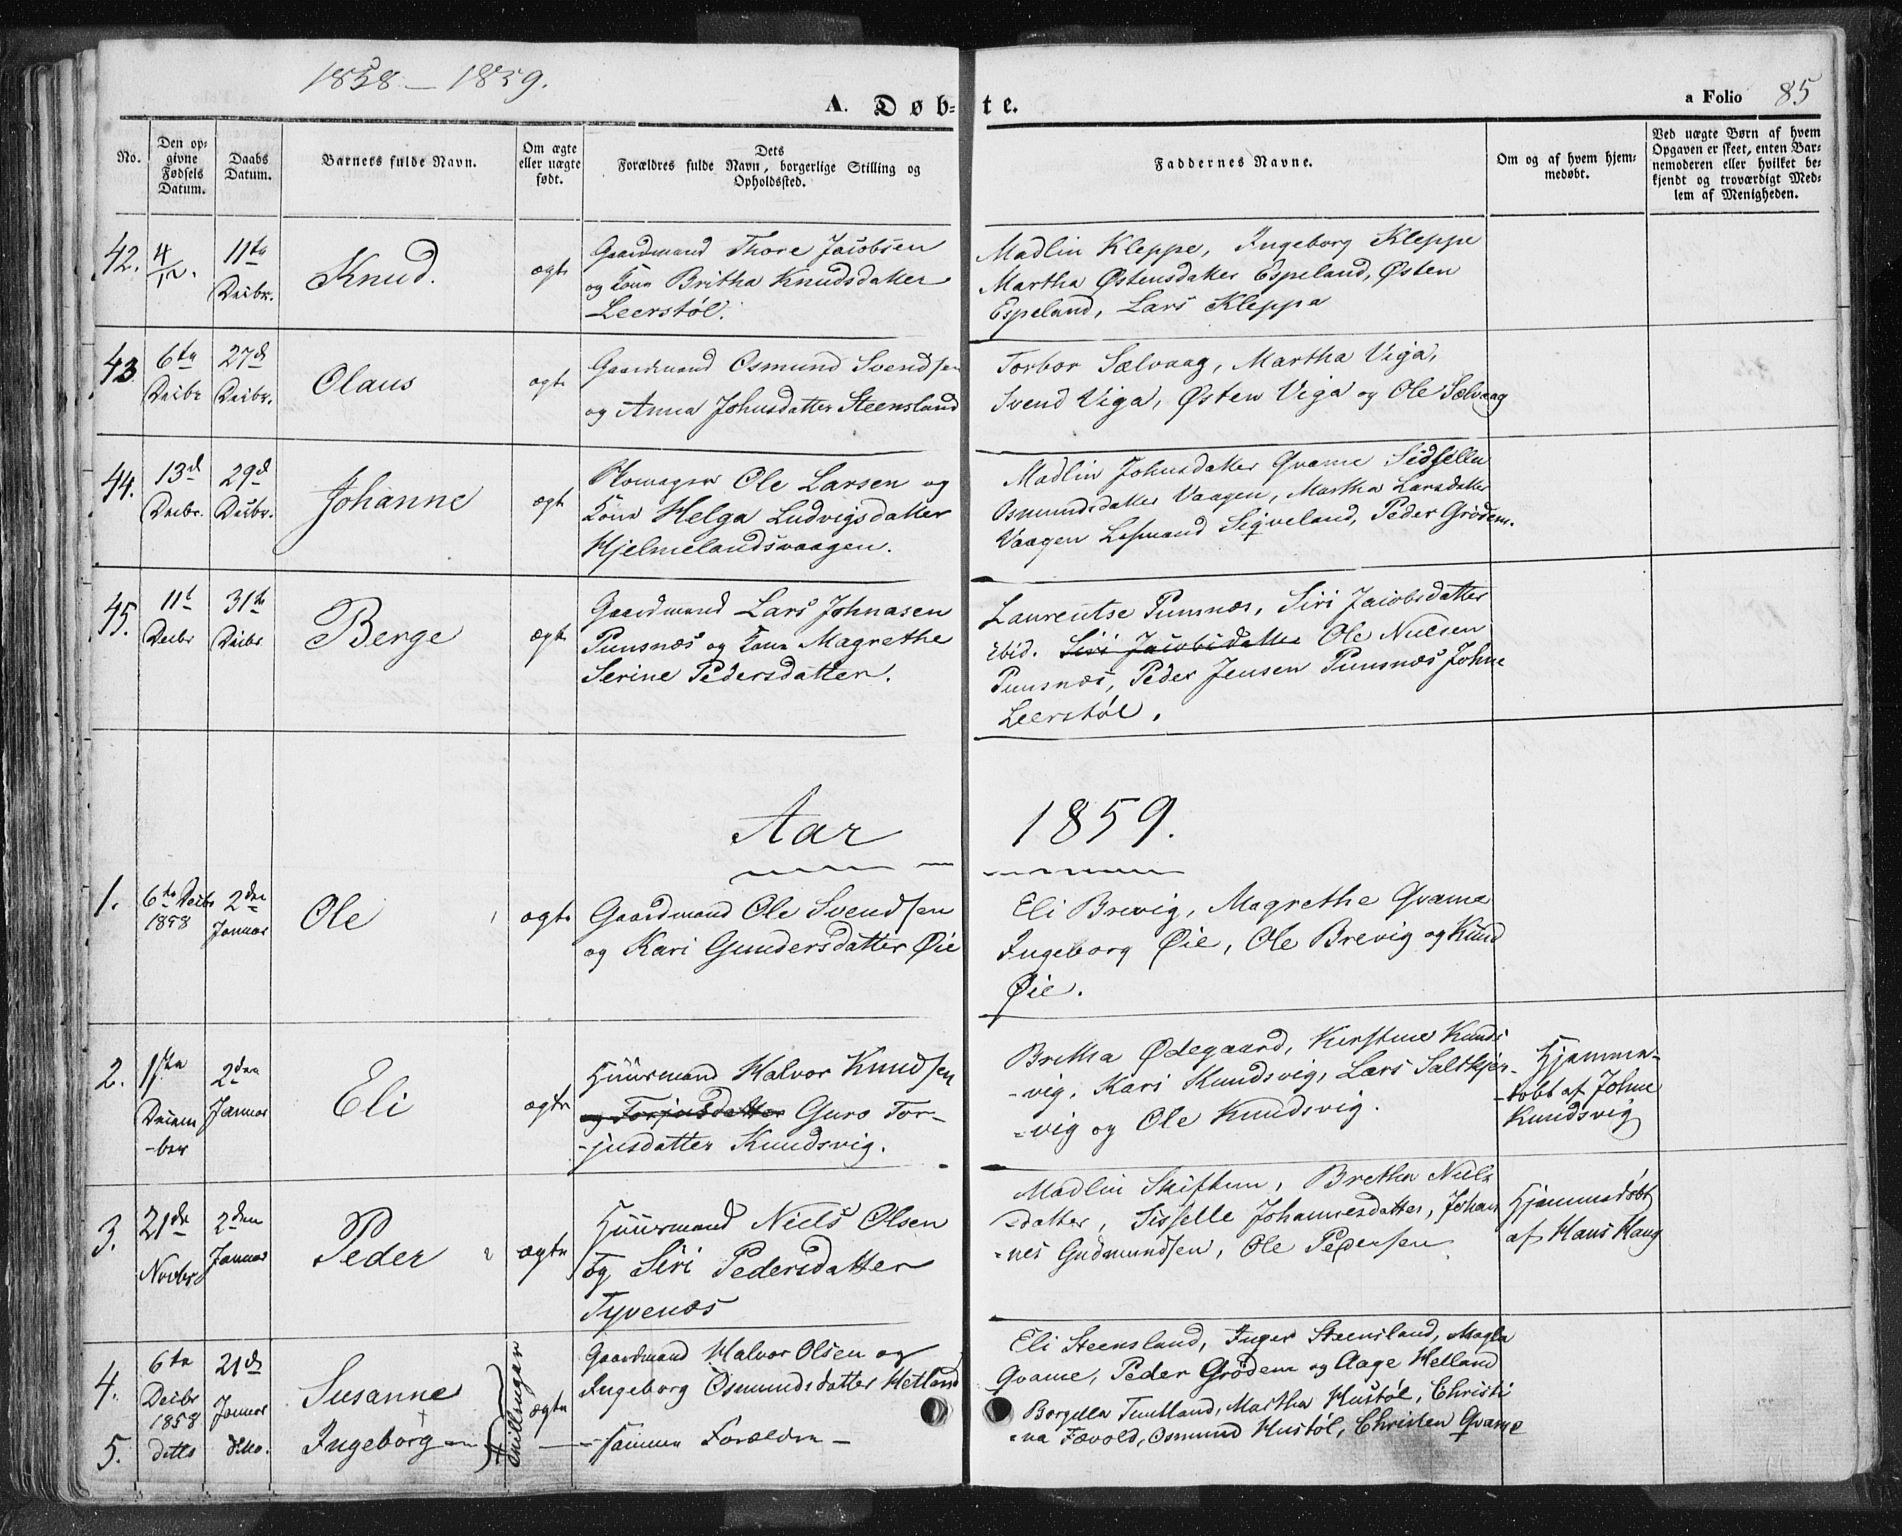 1858 — 1859.
A. Døb= te.
a Folio 85
No.
Den op=
givne
Fødsels
Datum.
Daabs
Datum.
Barnets fulde Navn.
Om ægte
eller uægte
født.
Dets
Forældres fulde Navn, borgerlige Stilling og
Opholdssted.
Faddernes Navne.
Om og af hvem hjem=
medøbt.
Ved uægte Børn af hvem
Opgaven er skeet, enten Bar=
nemoderen eller hvilket be=
kjendt og troværdigt Med=
lem af Menigheden.
42.
4/12.
11te
Decbr.
Knud.
ægte
Gaardmand Thore Jacobsen
og Kone Britha Knudsdatter
Leerstøl.
Madlin Kleppe, Ingeborg Kleppe
Martha Østensdatter Espeland, Østen
Espeland, Lars Kleppa
43
6te
Decbr
27d
Decbr.
Olaus
ægte
Gaardmand Osmund Svendsen
og Anna Johnsdatter Steensland
Torbor Sælvaag, Martha Viga,
Svend Viga, Østen Viga og Ole Sælvaag
44.
13d
Decbr.
29d
Decbr.
Johanne
ægte
Ole Larsen og
Kone Helga Ludvigsdatter
Hjelmelandsvaagen.
Madlin Johnsdatter Qvame Sidselle
Osmundsdatter Vaagen, Martha Larsdatter
Vaagen Sigveland, Peder Grødem.
45.
11t
Decbr
31te
Decbr
Berge
ægte
Gaardmand Lars Johnasen
Punsnæs og Kone Magrethe
Serine Pedersdatter.
Laurentse Punsnæs, Siri Jacobsdatter
ebid. Siri Jacobsdatter Ole Nielsen
Punsnæs, Peder Jensen Punsnæs Johne
Leerstøl.
Aar 1859.
1.
6te Decbr
1858
2den
Januar
Ole
ægte
Gaardmand Ole Svendsen
og Kari Gundersdatter Øie
Eli Brevig, Magrethe Qvame
Ingeborg Øie, Ole Brevig og Knud
Øie.
2.
1ste
Decem
-ber
2den
Januar
Eli
ægte
Huusmand Halvor Knudsen
og Torjusdatter Guro Tor-
-jusdatter Knudsvig.
Britha Ødegaard, Kirstine Knuds
-vig, Kari Knudsvig, Lars Saltkjer-
=vig og Ole Knudsvig.
Hjemme-
-døbt af Johne
Knudsvig
3.
21de
Novbr.
2den
Januar
Peder
ægte
Huusmand Niels Olsen
og Siri Pedersdatter
Tyvenæs
Madlin Skiftun, Bretha Niels
-datter, Sisselle Johannesdatter, Johan
=nes Gudmundsen, Ole Pedersen
Hjemmedøbt
af Hans Haug
4.
6te
Decbr
1858
21de
Januar
Susanne
Tvillinger
ægte
Gaardmand Halvor Olsen og
Ingeborg Osmundsdatter Hetland
Eli Steensland, Inger Steensland, Magla
Qvame, Peder Grödem og Aage Hetland
5.
ditto
ditto.
Ingeborg
— samme Forældre —
Borgilla Tuntland, Martha Hustøl, Christi
=na Fævold, Osmund Hustøl, Christen Qvame